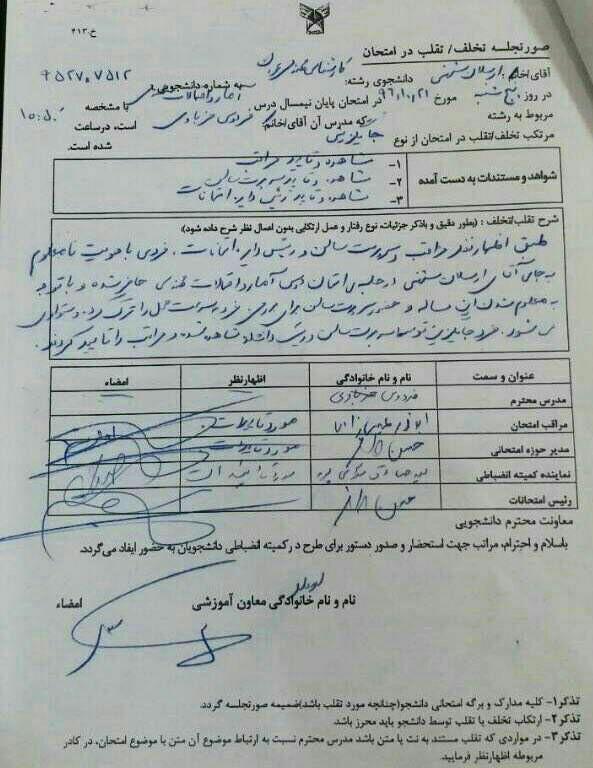 خ-۴۱۳
صورتجلسه تخلف/ تقلب در امتحان
آقای/خانم: ارسلان دانشجوی رشته: کارشناسی عمران به شماره دانشجویی: ۹۵۲۷۰۷۵۱۲
در روز پنج شنبه مورخ ۹۶،۱۰،۲۱ در امتحان پایان نیمسال درس آمار و احتمالات مهندسی با مشخصه
مربوط به رشته که مدرس آن آقای/خانم: است، درساعت ۱۰:۵۰
مرتکب تخلف/تقلب در امتحان از نوع جایگزینی شده است.
شواهد و مستندات به دست آمده
۱- مشاهده و تایید مراقب
۲- مشاهده و تایید سرپرست سالن
۳- مشاهده و تایید رئیس دایره امتحانات
شرح تقلب/تخلف : (بطور دقیق و باذکر جزئیات، نوع رفتار و عمل ارتکابی بدون اعمال نظر شرح داده شود)
طبق اظهار نظر مراقب و سرپرست سالن و رئیس دایره امتحانات، فردی با هویت نامعلوم
به جای آقای ارسلان در جلسه ی امتحان درس آمار و احتمالات مهندسی حاضر شده و با توجه
به معلوم شدن این مساله و حضور سرپرست سالن برای بررسی، فرد به سرعت محل را ترک کرد و متواری
می شود. فرد جایگزین توسط سرپرست سالن رویت و مشاهده شده و مراتب را تایید کردند.
عنوان و سمت نام و نام خانوادگی اظهارنظر امضاء
مدرس محترم
مراقب امتحان مورد تایید است
مدیر حوزه امتحانی مورد تایید است
نماینده کمیته انضباطی مورد تایید است
رئیس امتحانات
معاونت محترم دانشجویی
باسلام و احترام، مراتب جهت استحضار و صدور دستور برای طرح در کمیته انضباطی دانشجویان به حضور ایفاد می‌گردد.
نام و نام خانوادگی معاون آموزشی امضاء
تذکر۱- کلیه مدارک و برگه امتحانی دانشجو(چنانچه مورد تقلب باشد)ضمیمه صورتجلسه گردد.
تذکر۲- ارتکاب تخلف یا تقلب توسط دانشجو باید محرز باشد.
تذکر۳- در مواردی که تقلب مستند به نت یا متن باشد مدرس محترم نسبت به ارتباط موضوع آن متن با موضوع امتحان، در کادر
مربوطه اظهارنظر فرمایید.